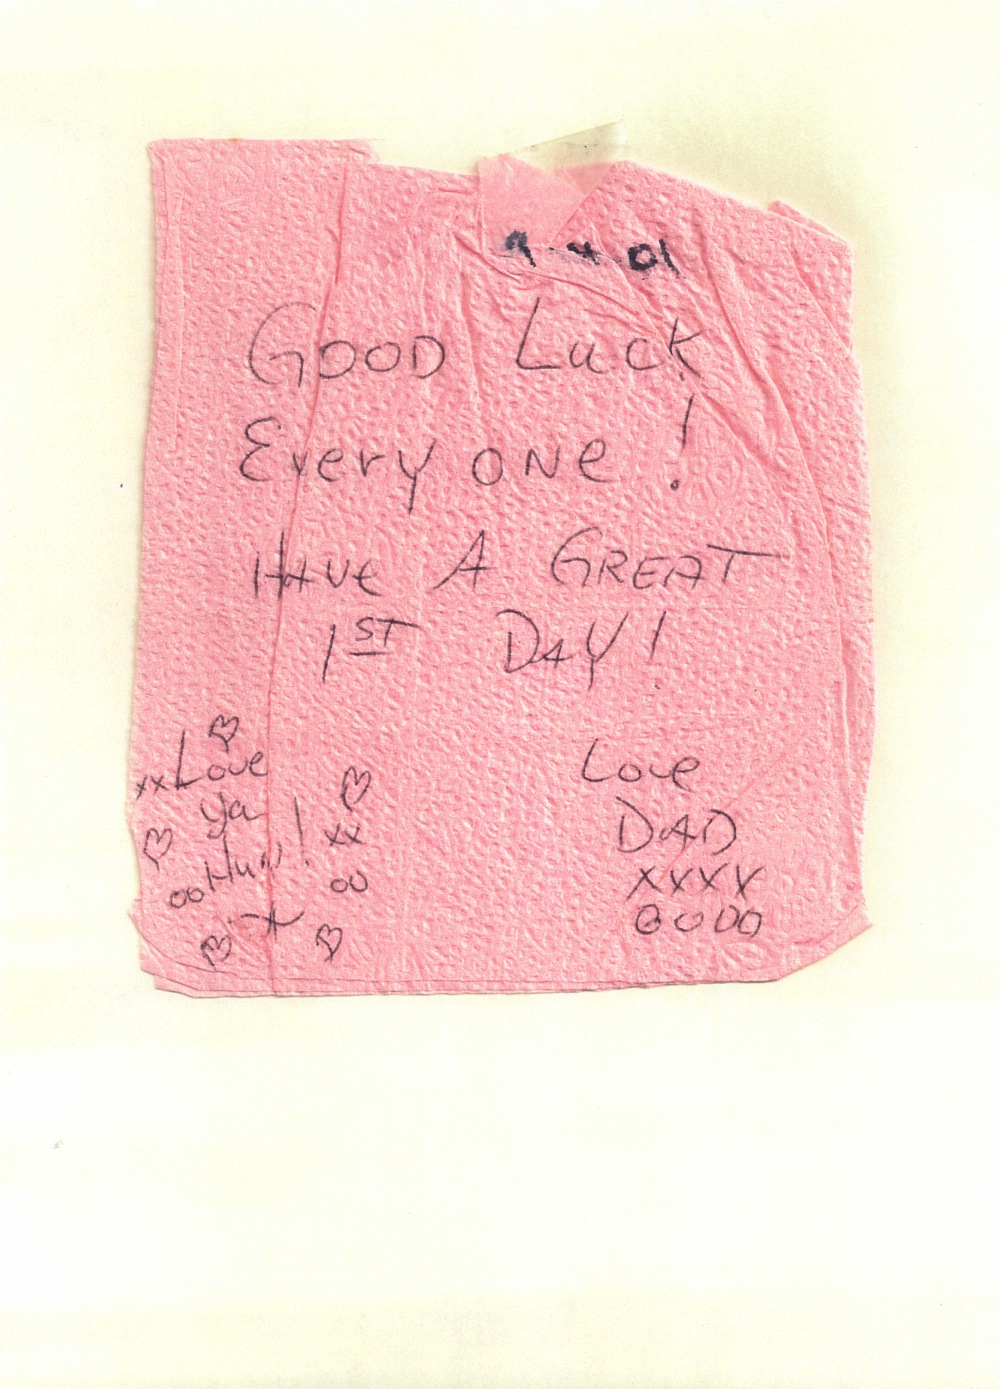 9-4-01
Good Luck
Every one!
Have A Great
1ST Day!
Love
DAD
xxxx
oooo
xx Love
ya
Hun!
oo
xx
oo
x